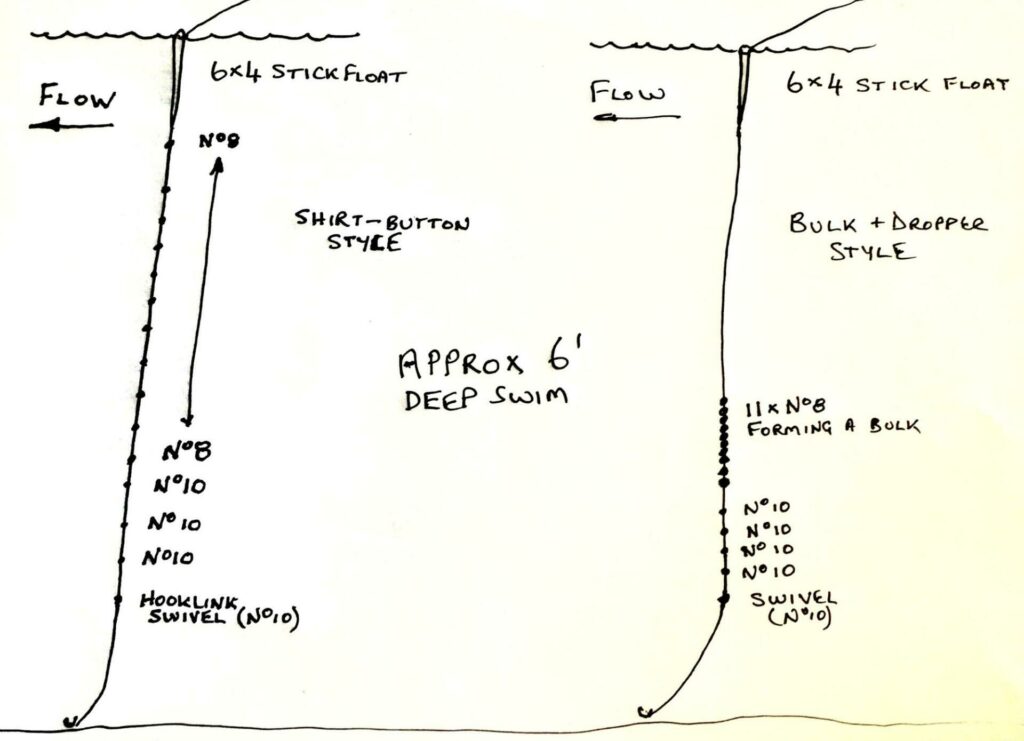 6x4 STICK FLOAT
FLOW
Nº8
SHIRT-BUTTON
STYLE
Nº8
Nº10
Nº10
Nº10
HOOKLINK
SWIVEL (Nº10)
APPROX 6'
DEEP SWIM
6x4 STICK FLOAT
FLOW
BULK + DROPPER
STYLE
11 x Nº8
FORMING A BULK
Nº10
Nº10
Nº10
Nº10
SWIVEL
(Nº10)